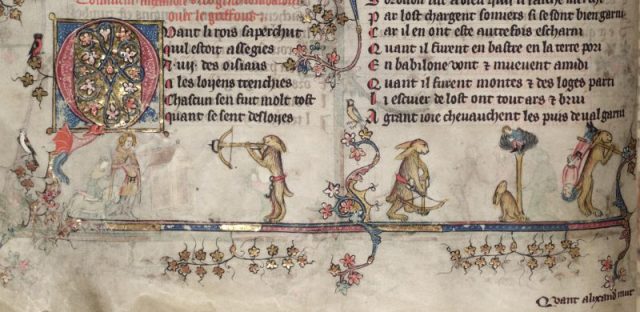 Quant li rois saperchuit
quil estoit assegies
A .vij. des oisians
A les loijens trenchies
Chascun sen fuit molt tost
quant se sent desloijes
Par lost chargent somiers si se sont bien garni
Car il en ont este autrefois escharni
Quant il furent en la terre
En babilone vont & muevent amidi
Quant il furent montes & des loges parti
Li escuier de lost ont tout ars & brui
A grant ioie cheuauchent les puis de ualgarni
Quant alixand mut